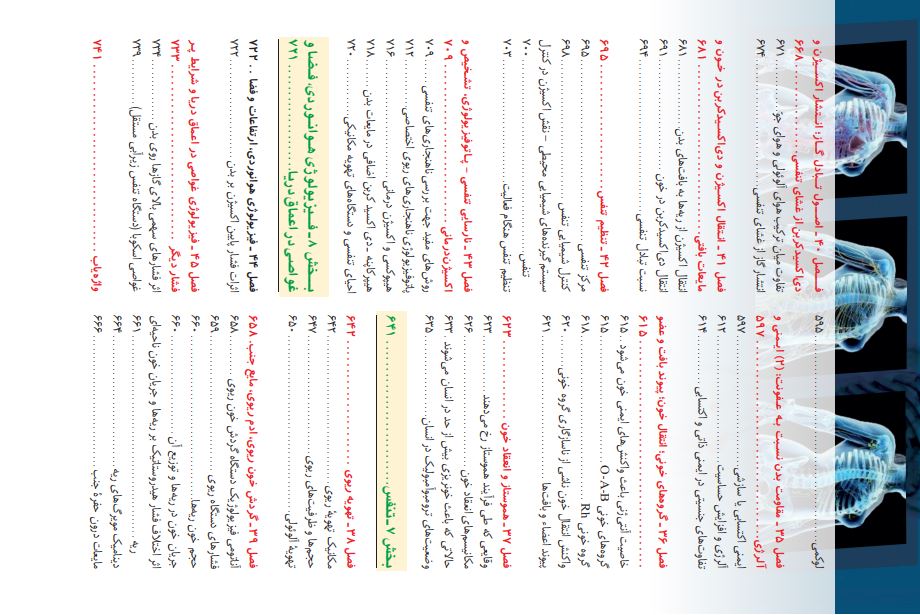 لوکمی ۵۹۵
فصل ۳۵ ـ مقاومت بدن نسبت به عفونت: (۲) ایمنی و
آلرژی ۵۹۷
ایمنی اکتسابی یا سازشی ۵۹۷
آلرژی و افزایش حساسیت ۶۱۲
تفاوت‌های جنسیتی در ایمنی ذاتی و اکتسابی ۶۱۴
فصل ۳۶ ـ گروه‌های خونی؛ انتقال خون؛ پیوند بافت و عضو
۶۱۵
خاصیت آنتی‌ژنی باعث واکنش‌های ایمنی خون می‌شود ۶۱۵
گروه‌های خونی O-A-B ۶۱۵
گروه خونی Rh ۶۱۸
واکنش انتقال خون ناشی از ناسازگاری گروه خونی ۶۲۰
پیوند اعضاء و بافت‌ها ۶۲۱
فصل ۳۷ ـ هموستاز و انعقاد خون ۶۲۳
وقایعی که طی فرآیند هموستاز رخ می‌دهند ۶۲۳
مکانیسم‌های انعقاد خون ۶۲۶
حالاتی که باعث خونریزی بیش از حد در انسان می‌شوند ۶۳۳
وضعیت‌های ترومبوآمبولیک در انسان ۶۳۵
بخش ۷ ـ تنفس ۶۴۱
فصل ۳۸ ـ تهویه ریوی ۶۴۲
مکانیک تهویه ریوی ۶۴۲
حجم‌ها و ظرفیت‌های ریوی ۶۴۷
تهویهٔ آلوئولی ۶۵۰
فصل ۳۹ ـ گردش خون ریوی، ادم ریوی، مایع جنب. ۶۵۸
آناتومی فیزیولوژیک دستگاه گردش خون ریوی ۶۵۸
فشارهای دستگاه ریوی ۶۵۹
حجم خون ریه‌ها ۶۶۰
جریان خون در ریه‌ها و توزیع آن ۶۶۰
اثر اختلاف فشار هیدروستاتیک بر ریه‌ها و جریان خون ناحیه‌ای
ریه ۶۶۱
دینامیک مویرگ‌های ریه ۶۶۴
مایعات درون حفرهٔ جنب ۶۶۶
فصل ۴۰ ـ اصول تبادل گاز؛ انتشار اکسیژن و
دی‌اکسیدکربن از غشای تنفسی ۶۶۸
تفاوت میان ترکیب هوای آلوئولی و هوای جوّ ۶۷۱
انتشار گاز از غشای تنفسی ۶۷۴
فصل ۴۱ ـ انتقال اکسیژن و دی‌اکسیدکربن در خون و
مایعات بافتی ۶۸۱
انتقال اکسیژن از ریه‌ها به بافت‌های بدن ۶۸۱
انتقال دی اکسیدکربن در خون ۶۹۱
نسبت تبادل تنفسی ۶۹۴
فصل ۴۲ ـ تنظیم تنفس ۶۹۵
مرکز تنفسی ۶۹۵
کنترل شیمیایی تنفس ۶۹۸
سیستم گیرنده‌های شیمیایی محیطی ـ نقش اکسیژن در کنترل
تنفس ۷۰۰
تنظیم تنفس هنگام فعالیت ۷۰۳
فصل ۴۳ ـ نارسایی تنفسی ـ پاتوفیزیولوژی، تشخیص و
اکسیژن‌درمانی ۷۰۹
روش‌های مفید جهت بررسی ناهنجاری‌های تنفسی ۷۰۹
پاتوفیزیولوژی ناهنجاری‌های ریوی اختصاصی ۷۱۲
هیپوکسی و اکسیژن درمانی ۷۱۶
هیپرکاپنه ـ دی اکسید کربن اضافی در مایعات بدن ۷۱۸
احیای تنفسی و دستگاه‌های تهویه مکانیکی ۷۲۰
بخش ۸ ـ فیزیولوژی هوانوردی، فضا و
غواصی در اعماق دریا ۷۲۱
فصل ۴۴ ـ فیزیولوژی هوانوردی، ارتفاعات و فضا ۷۲۲
اثرات فشار پائین اکسیژن بر بدن ۷۲۲
فصل ۴۵ ـ فیزیولوژی غواصی در اعماق دریا و شرایط پر
فشار دیگر ۷۳۳
اثر فشارهای سهمی بالای گازها روی بدن ۷۳۴
غواصی اسکوبا (دستگاه تنفس زیرآبی مستقل) ۷۳۹
واژه‌یاب ۷۴۱